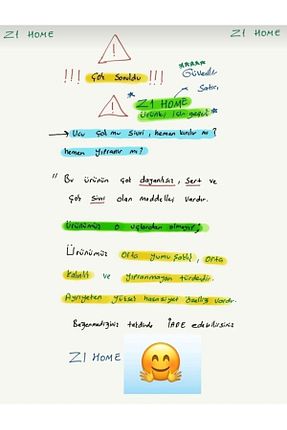 Z1 HOME Z1 HOME
!!! Çok Soruldu !!!
★★★★★
Güvenilir
Satıcı
Z1 HOME
Ürünü için geçerli
→ Ucu çok mu Sivri, hemen kırılır mı?
hemen yıpranır mı?
" Bu ürünün çok dayanıksız, Sert ve
çok Sivri olan modelleri vardır.
Ürünümüz o uçlardan olmayıp;
Ürünümüz Orta Yumuşaklık, Orta
Kalınlık ve Yıpranmayan türdendir.
Ayrıyeten Yüksek hassasiyet özelliği vardır.
Beğenmediğiniz taktirde İADE edebilirsiniz
Z1 HOME